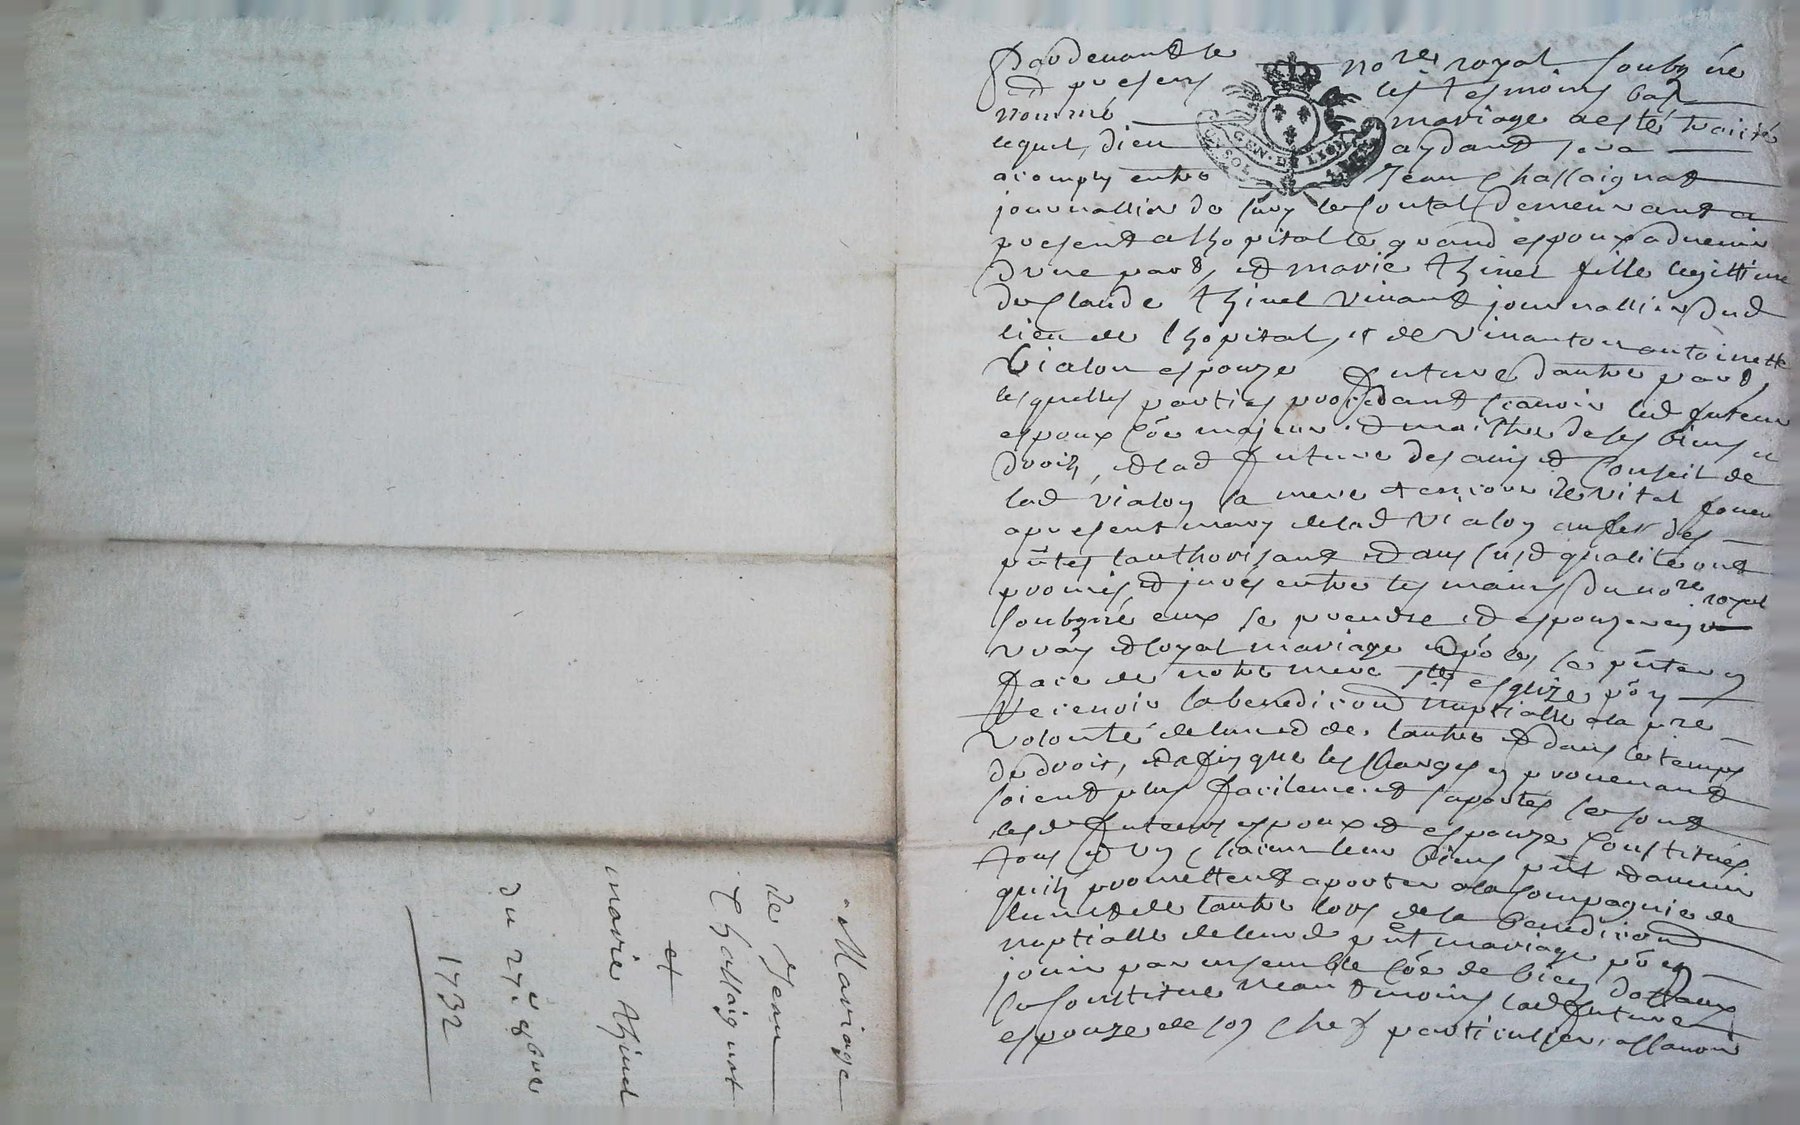 Mariage
de Jean
Chassaignat
et
marie thinel
du 27.e 9bre
1732
Pardevant le nore royal soubzné
et presens les tesmoins bas
nommé mariage a esté traitté
lequel, dieu aydant sera
acomply entre Jean Chassaignat
journallier de sury demeurant a
present a lhopital le grand espoux advenir
dune part, et marie thinel fille legittime
de Claude thinel vivant journallier dud
lieu de lhopital, et de vivanton antoinette
vialon espouze future dautre part,
lesquelles parties procedant scavoir led futeur
espoux coe majeur et maistre de ses biens et
droits, et lad future des avis et conseil de
lad vialon sa mere et encore de vital
apresent mary de lad vialon
pntes lauthorisant et aus susd qualité ont
promis et jurés entre les mains du nore royal
soubzné eux se prendre et espouzer en
vray et loyal mariage et se pnter en
face de notre mere ste esglize po y
recevoir la benediction nuptialle a la pre
volonté de lun et de lautre et dans le temps
du droit, et afin que les charges en provenant
soient plus facilement suportés se sont
lesd futeurs espoux et espouze constitués
tous et un chacun leur biens pnt et avenir
quils promettent aporter a la compagnie de
lun et de lautre lors de la benediction
nuptialle de leurd pnt mariage po en
jouir par ensemble coe de bien dottaux
se constitue neantmoins lad future
espouze de son chef particulier, assavoir
GEN. DE LYON